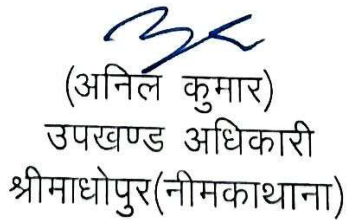 (अनिल कुमार)
उपखण्ड अधिकारी
श्रीमाधोपुर(नीमकाथाना)